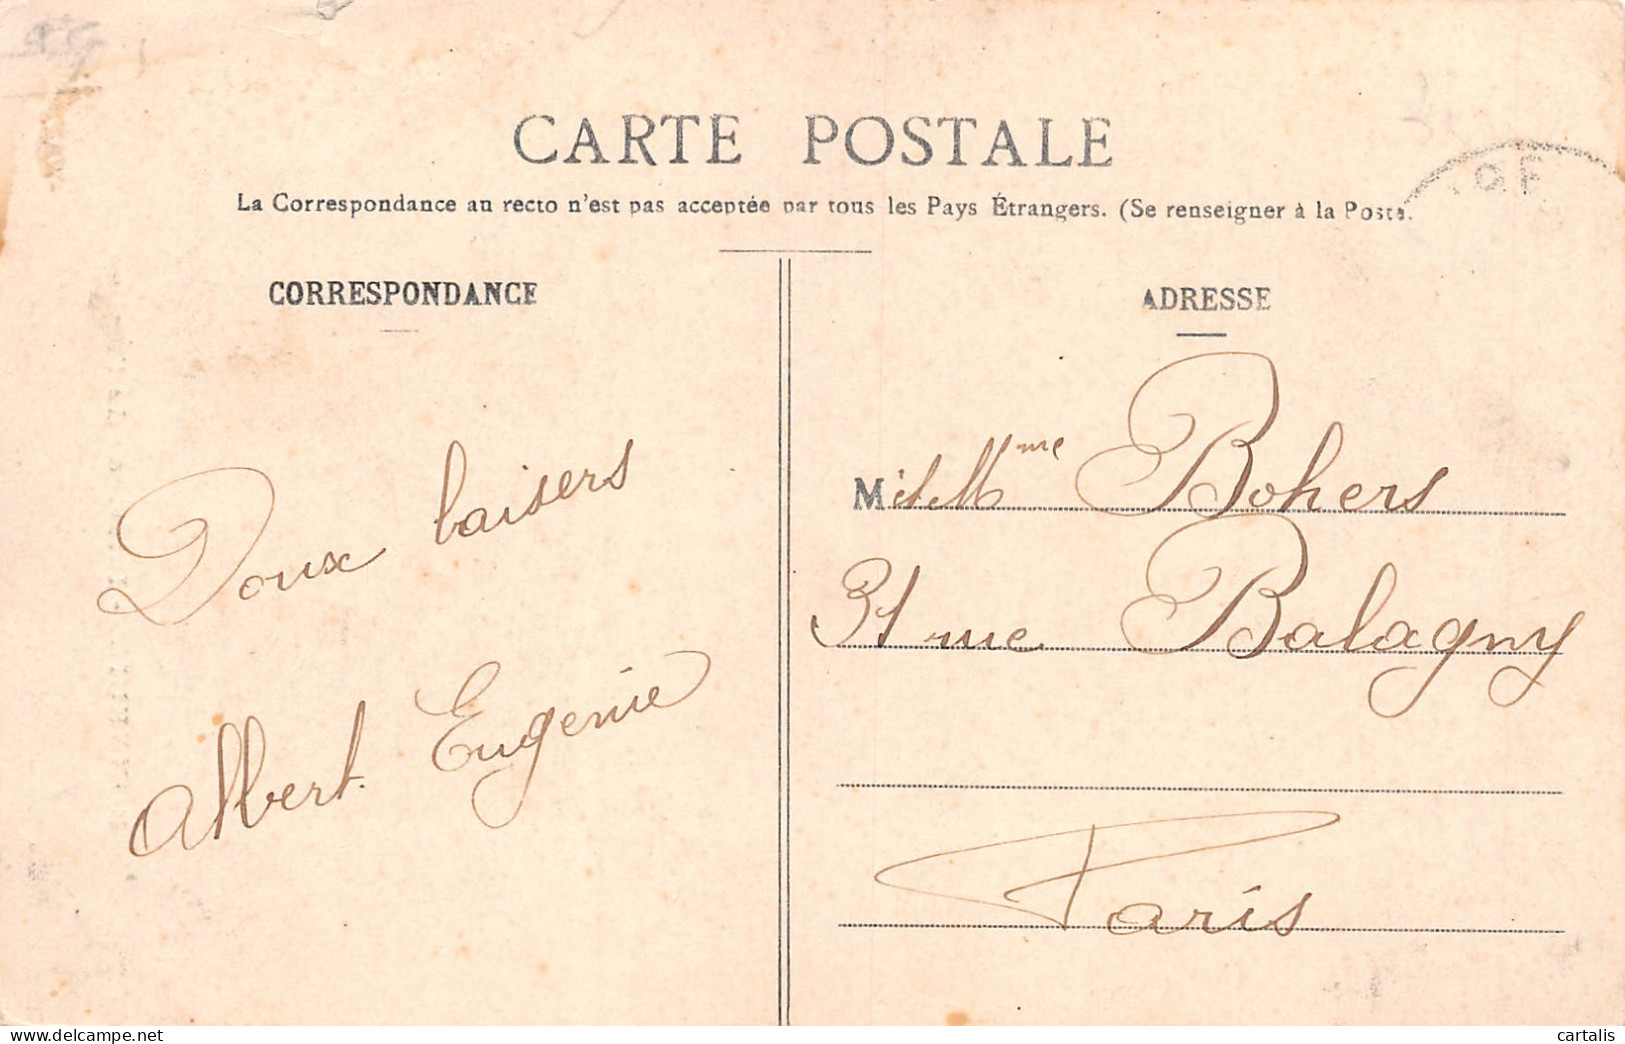 CARTE POSTALE
La Correspondance au recto n'est pas acceptée par tous les Pays Étrangers. (Se renseigner à la Poste.
CORRESPONDANCE
Doux baisers
Albert Eugenie
ADRESSE
M et Mme Bohers
31 rue Balagny
Paris
www.delcampe.net
cartalis